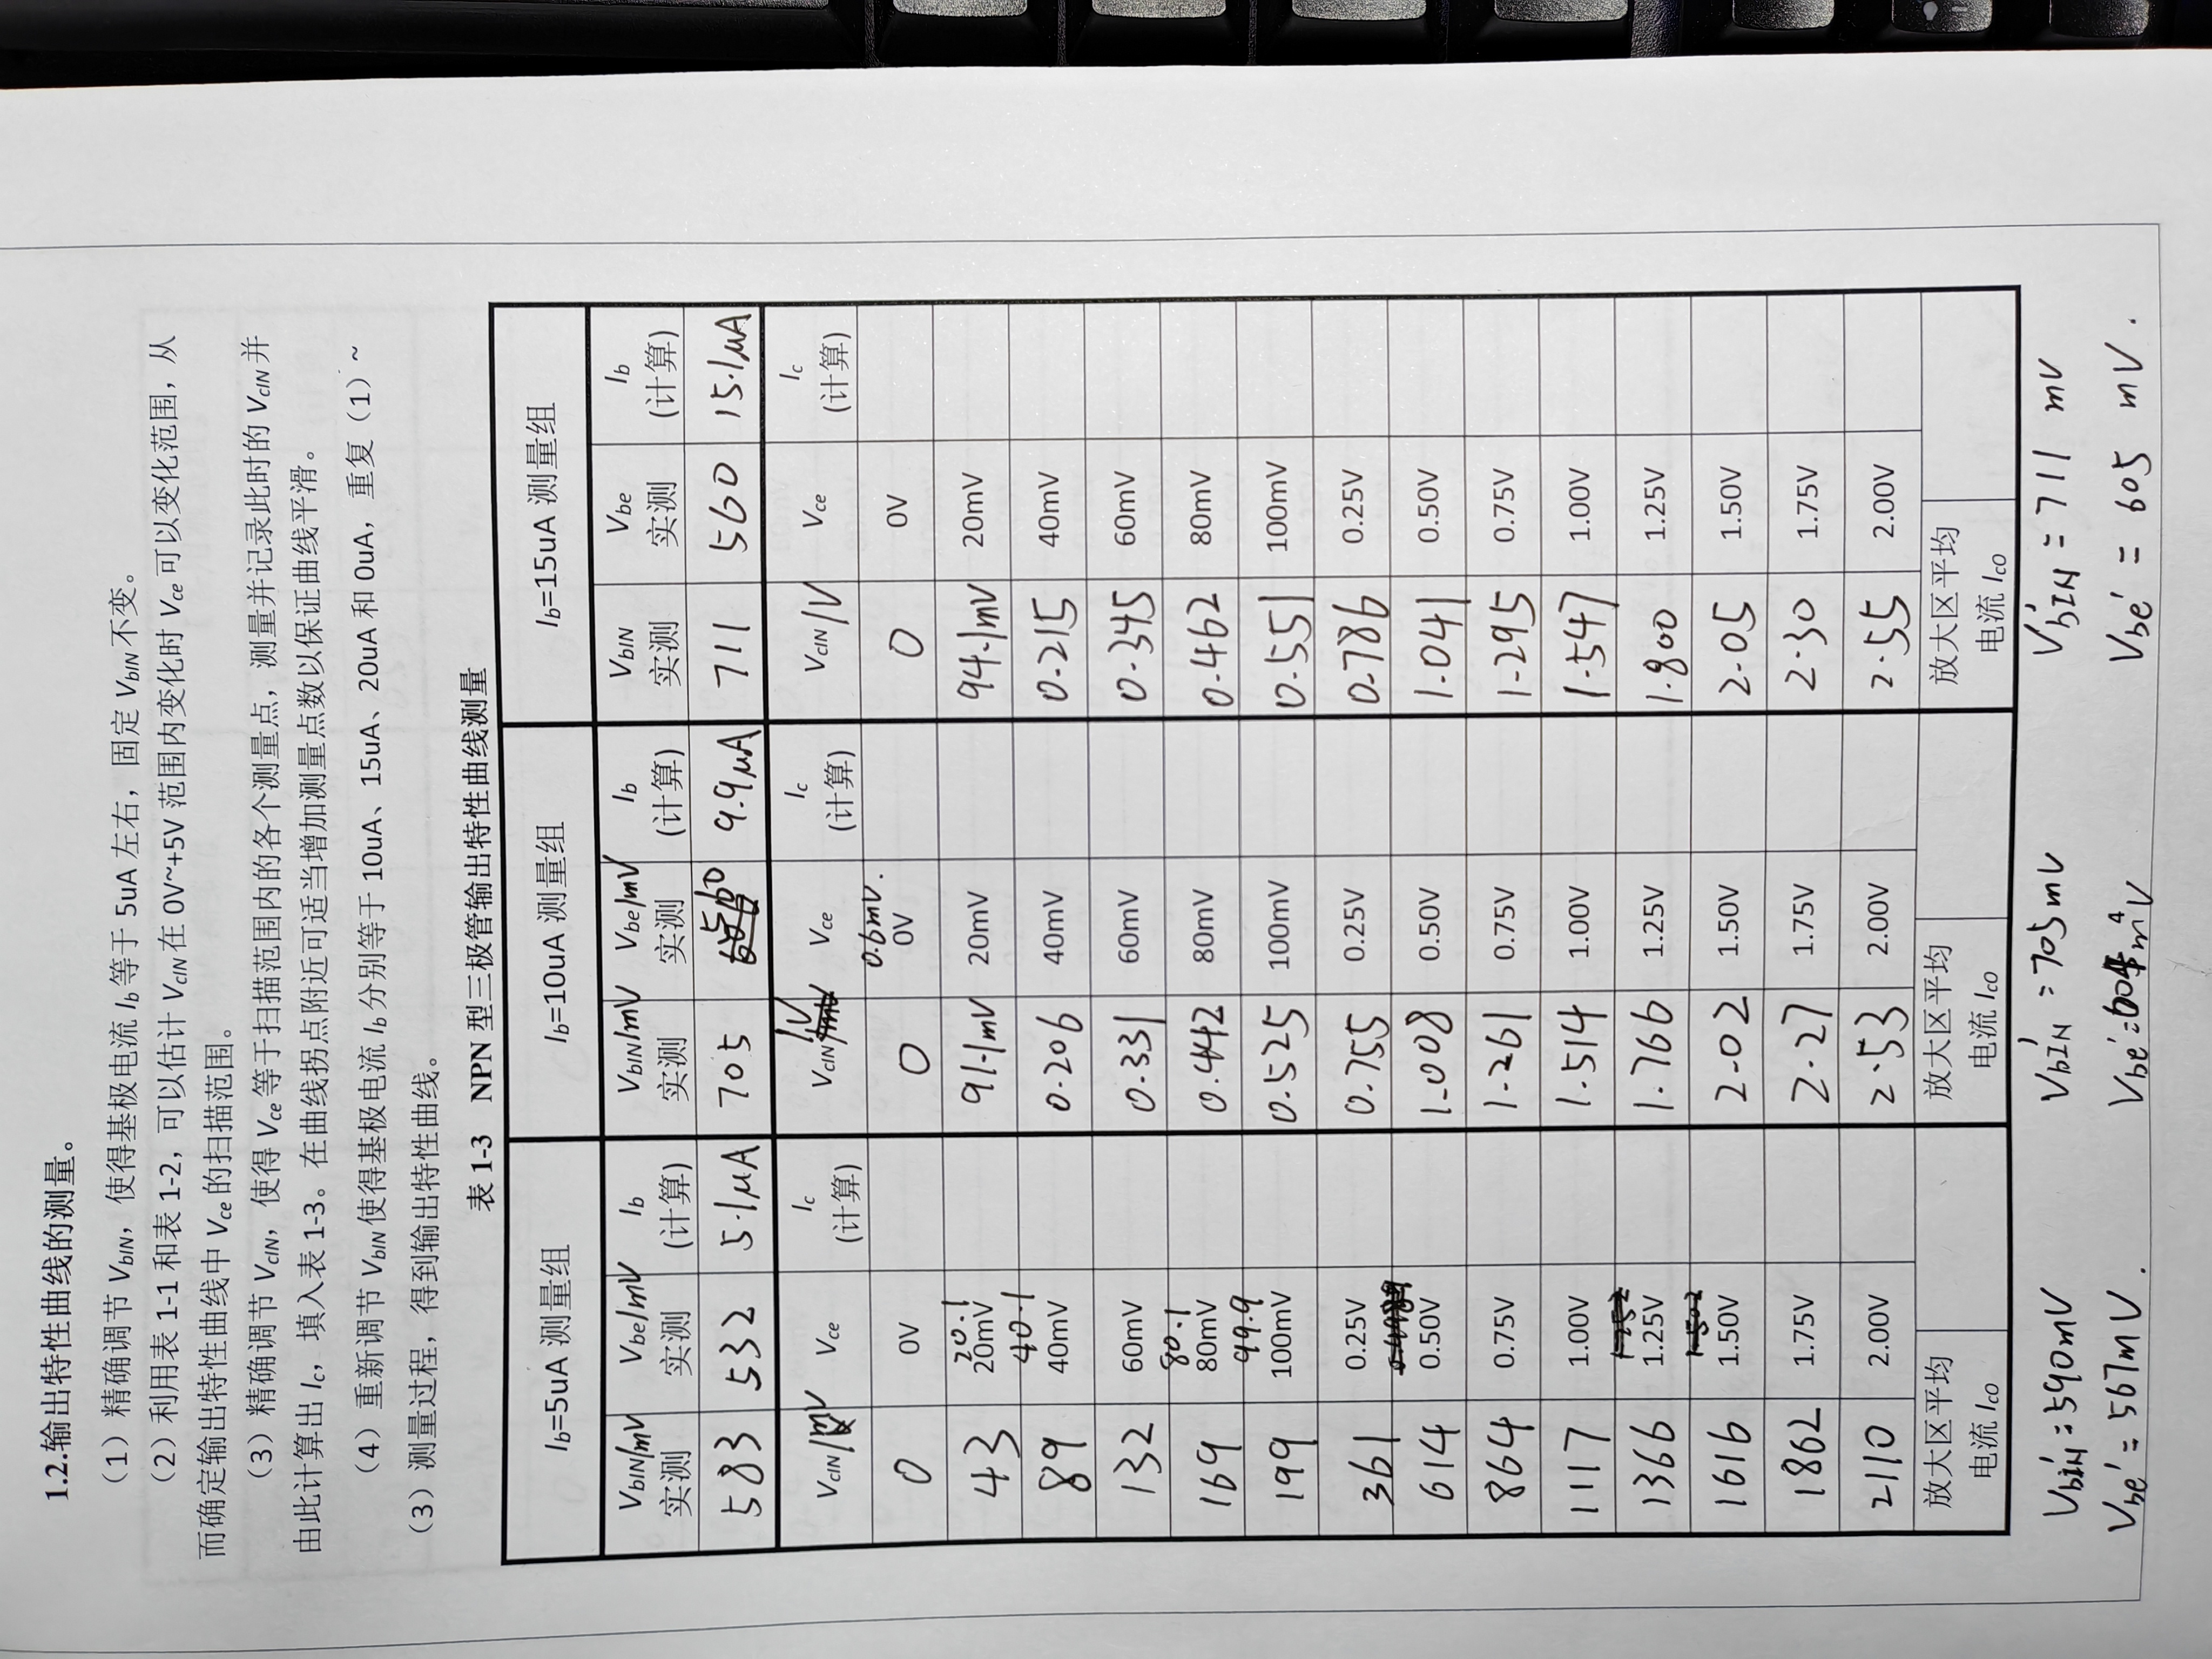 1.2.输出特性曲线的测量。
（1）精确调节 VbIN，使得基极电流 Ib 等于 5uA 左右，固定 VbIN 不变。
（2）利用表 1-1 和表 1-2，可以估计 VcIN 在 0V~+5V 范围内变化时 Vce 可以变化范围，从
而确定输出特性曲线中 Vce 的扫描范围。
（3）精确调节 VcIN，使得 Vce 等于扫描范围内的各个测量点，测量并记录此时的 VcIN 并
由此计算出 Ic，填入表 1-3。在曲线拐点附近可适当增加测量点数以保证曲线平滑。
（4）重新调节 VbIN 使得基极电流 Ib 分别等于 10uA、15uA、20uA 和 0uA，重复（1）~
（3）测量过程，得到输出特性曲线。
表 1-3 NPN 型三极管输出特性曲线测量
Ib=5uA 测量组 Ib=10uA 测量组 Ib=15uA 测量组
VbIN/mV Vbe/mV Ib VbIN/mV Vbe/mV Ib VbIN Vbe Ib
实测 实测 (计算) 实测 实测 (计算) 实测 实测 (计算)
583 532 5.1μA 705 560 9.9μA 711 560 15.1μA
VcIN/mV Vce Ic (计算) VcIN/V Vce Ic (计算) VcIN/V Vce Ic (计算)
0.6mV.
0 0V 0 0V 0 0V
20.1
43 20mV 91.1mV 20mV 94.1mV 20mV
40.1
89 40mV 0.206 40mV 0.215 40mV
132 60mV 0.331 60mV 0.345 60mV
80.1
169 80mV 0.442 80mV 0.462 80mV
99.9
199 100mV 0.525 100mV 0.551 100mV
361 0.25V 0.755 0.25V 0.786 0.25V
614 0.50V 1.008 0.50V 1.041 0.50V
864 0.75V 1.261 0.75V 1.295 0.75V
1117 1.00V 1.514 1.00V 1.547 1.00V
1366 1.25V 1.766 1.25V 1.800 1.25V
1616 1.50V 2.02 1.50V 2.05 1.50V
1862 1.75V 2.27 1.75V 2.30 1.75V
2110 2.00V 2.53 2.00V 2.55 2.00V
放大区平均 放大区平均 放大区平均
电流 Ico 电流 Ico 电流 Ico
VbIN'=590mV VbIN'=705mV VbIN'=711 mV
Vbe'=567mV. Vbe'=604mV Vbe'=605 mV.